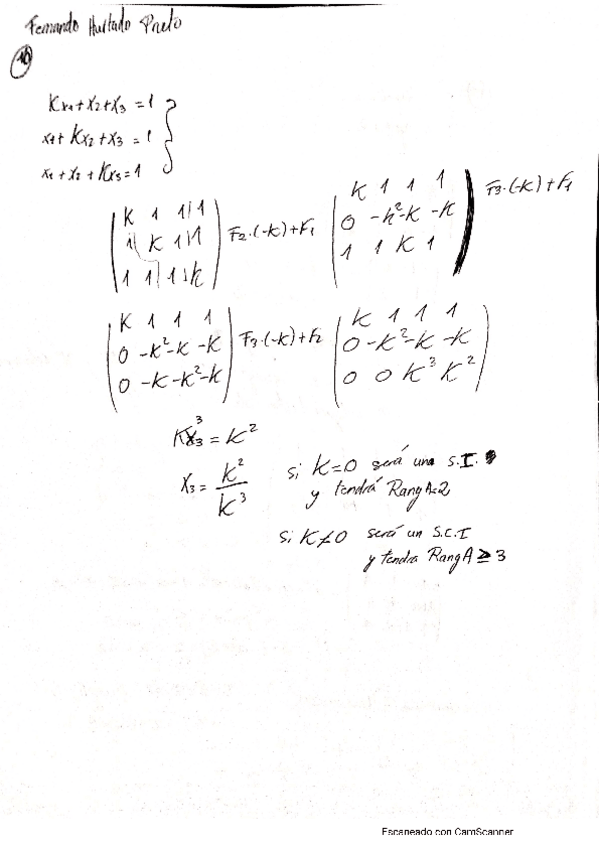 Fernando Hurtado Prieto
10
Kx1+x2+x3 = 1
x1+Kx2+x3 = 1
x1+x2+Kx3=1
K 1 1 | 1 F2·(-K)+F1 K 1 1 1 F3·(-K)+F1
1 K 1 | 1 0 -K²-K -K
1 1 1 K 1 1 K 1
K 1 1 1 F3·(-K)+F2 K 1 1 1
0 -K²-K -K 0 -K²-K -K
0 -K-K²-K 0 0 K³ K²
Kx₃³ = K²
X3 = K²/K³ si K=0 será una S.I.
y tendrá Rang A=2
si K≠0 será un S.C.I
y tendra Rang A ≥ 3
Escaneado con CamScanner